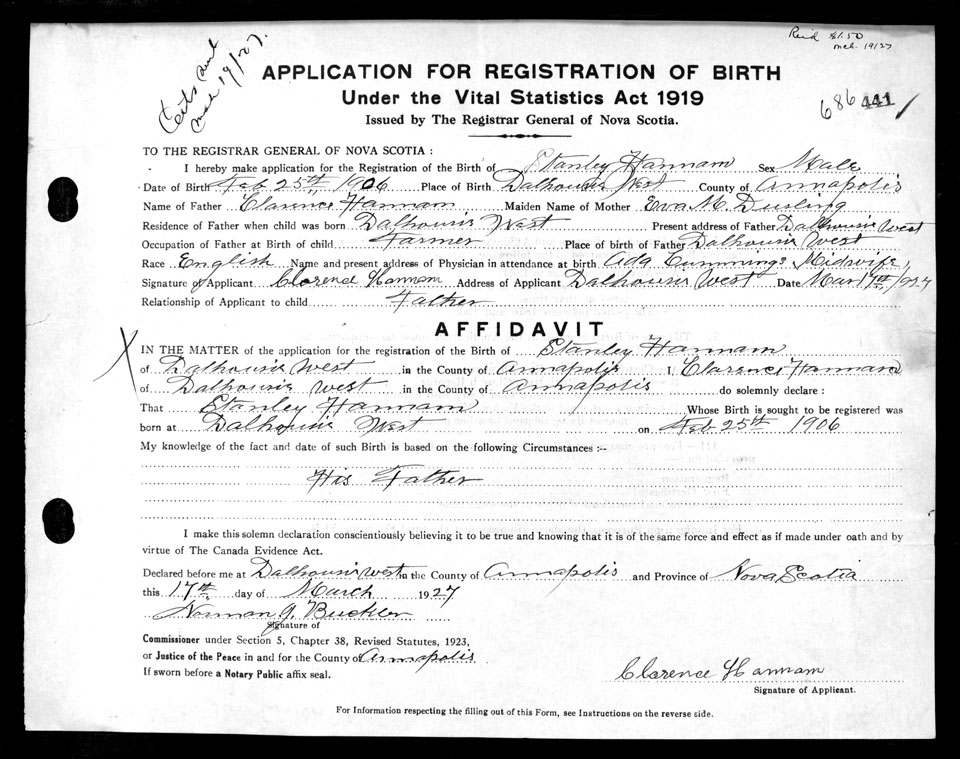 Rec'd $1.50
Mch. 19/27
Certs sent
Mch 19/27.
APPLICATION FOR REGISTRATION OF BIRTH
Under the Vital Statistics Act 1919
Issued by The Registrar General of Nova Scotia.
686 441
TO THE REGISTRAR GENERAL OF NOVA SCOTIA :
I hereby make application for the Registration of the Birth of Stanley Hannam Sex Male
Date of Birth Feb 25th 1906 Place of Birth Dalhousie West County of Annapolis
Name of Father Clarence Hannam Maiden Name of Mother Eva M. Dusling
Residence of Father when child was born Dalhousie West Present address of Father Dalhousie West
Occupation of Father at Birth of child Farmer Place of birth of Father Dalhousie West
Race English Name and present address of Physician in attendance at birth Ada Cummings Midwife,
Signature of Applicant Clarence Hannam Address of Applicant Dalhousie West Date Mar 17th/1927
Relationship of Applicant to child Father
AFFIDAVIT
X
IN THE MATTER of the application for the registration of the Birth of Stanley Hannam
of Dalhousie West in the County of Annapolis I, Clarence Hannam
of Dalhousie West in the County of Annapolis do solemnly declare :
That Stanley Hannam Whose Birth is sought to be registered was
born at Dalhousie West on Feb 25th 1906
My knowledge of the fact and date of such Birth is based on the following Circumstances :--
His Father
I make this solemn declaration conscientiously believing it to be true and knowing that it is of the same force and effect as if made under oath and by
virtue of The Canada Evidence Act.
Declared before me at Dalhousie West in the County of Annapolis and Province of Nova Scotia
this 17th day of March 1927
Norman G. Buckler
Signature of
Commissioner under Section 5, Chapter 38, Revised Statutes, 1923,
or Justice of the Peace in and for the County of Annapolis
If sworn before a Notary Public affix seal.
Clarence Hannam
Signature of Applicant.
For Information respecting the filling out of this Form, see Instructions on the reverse side.